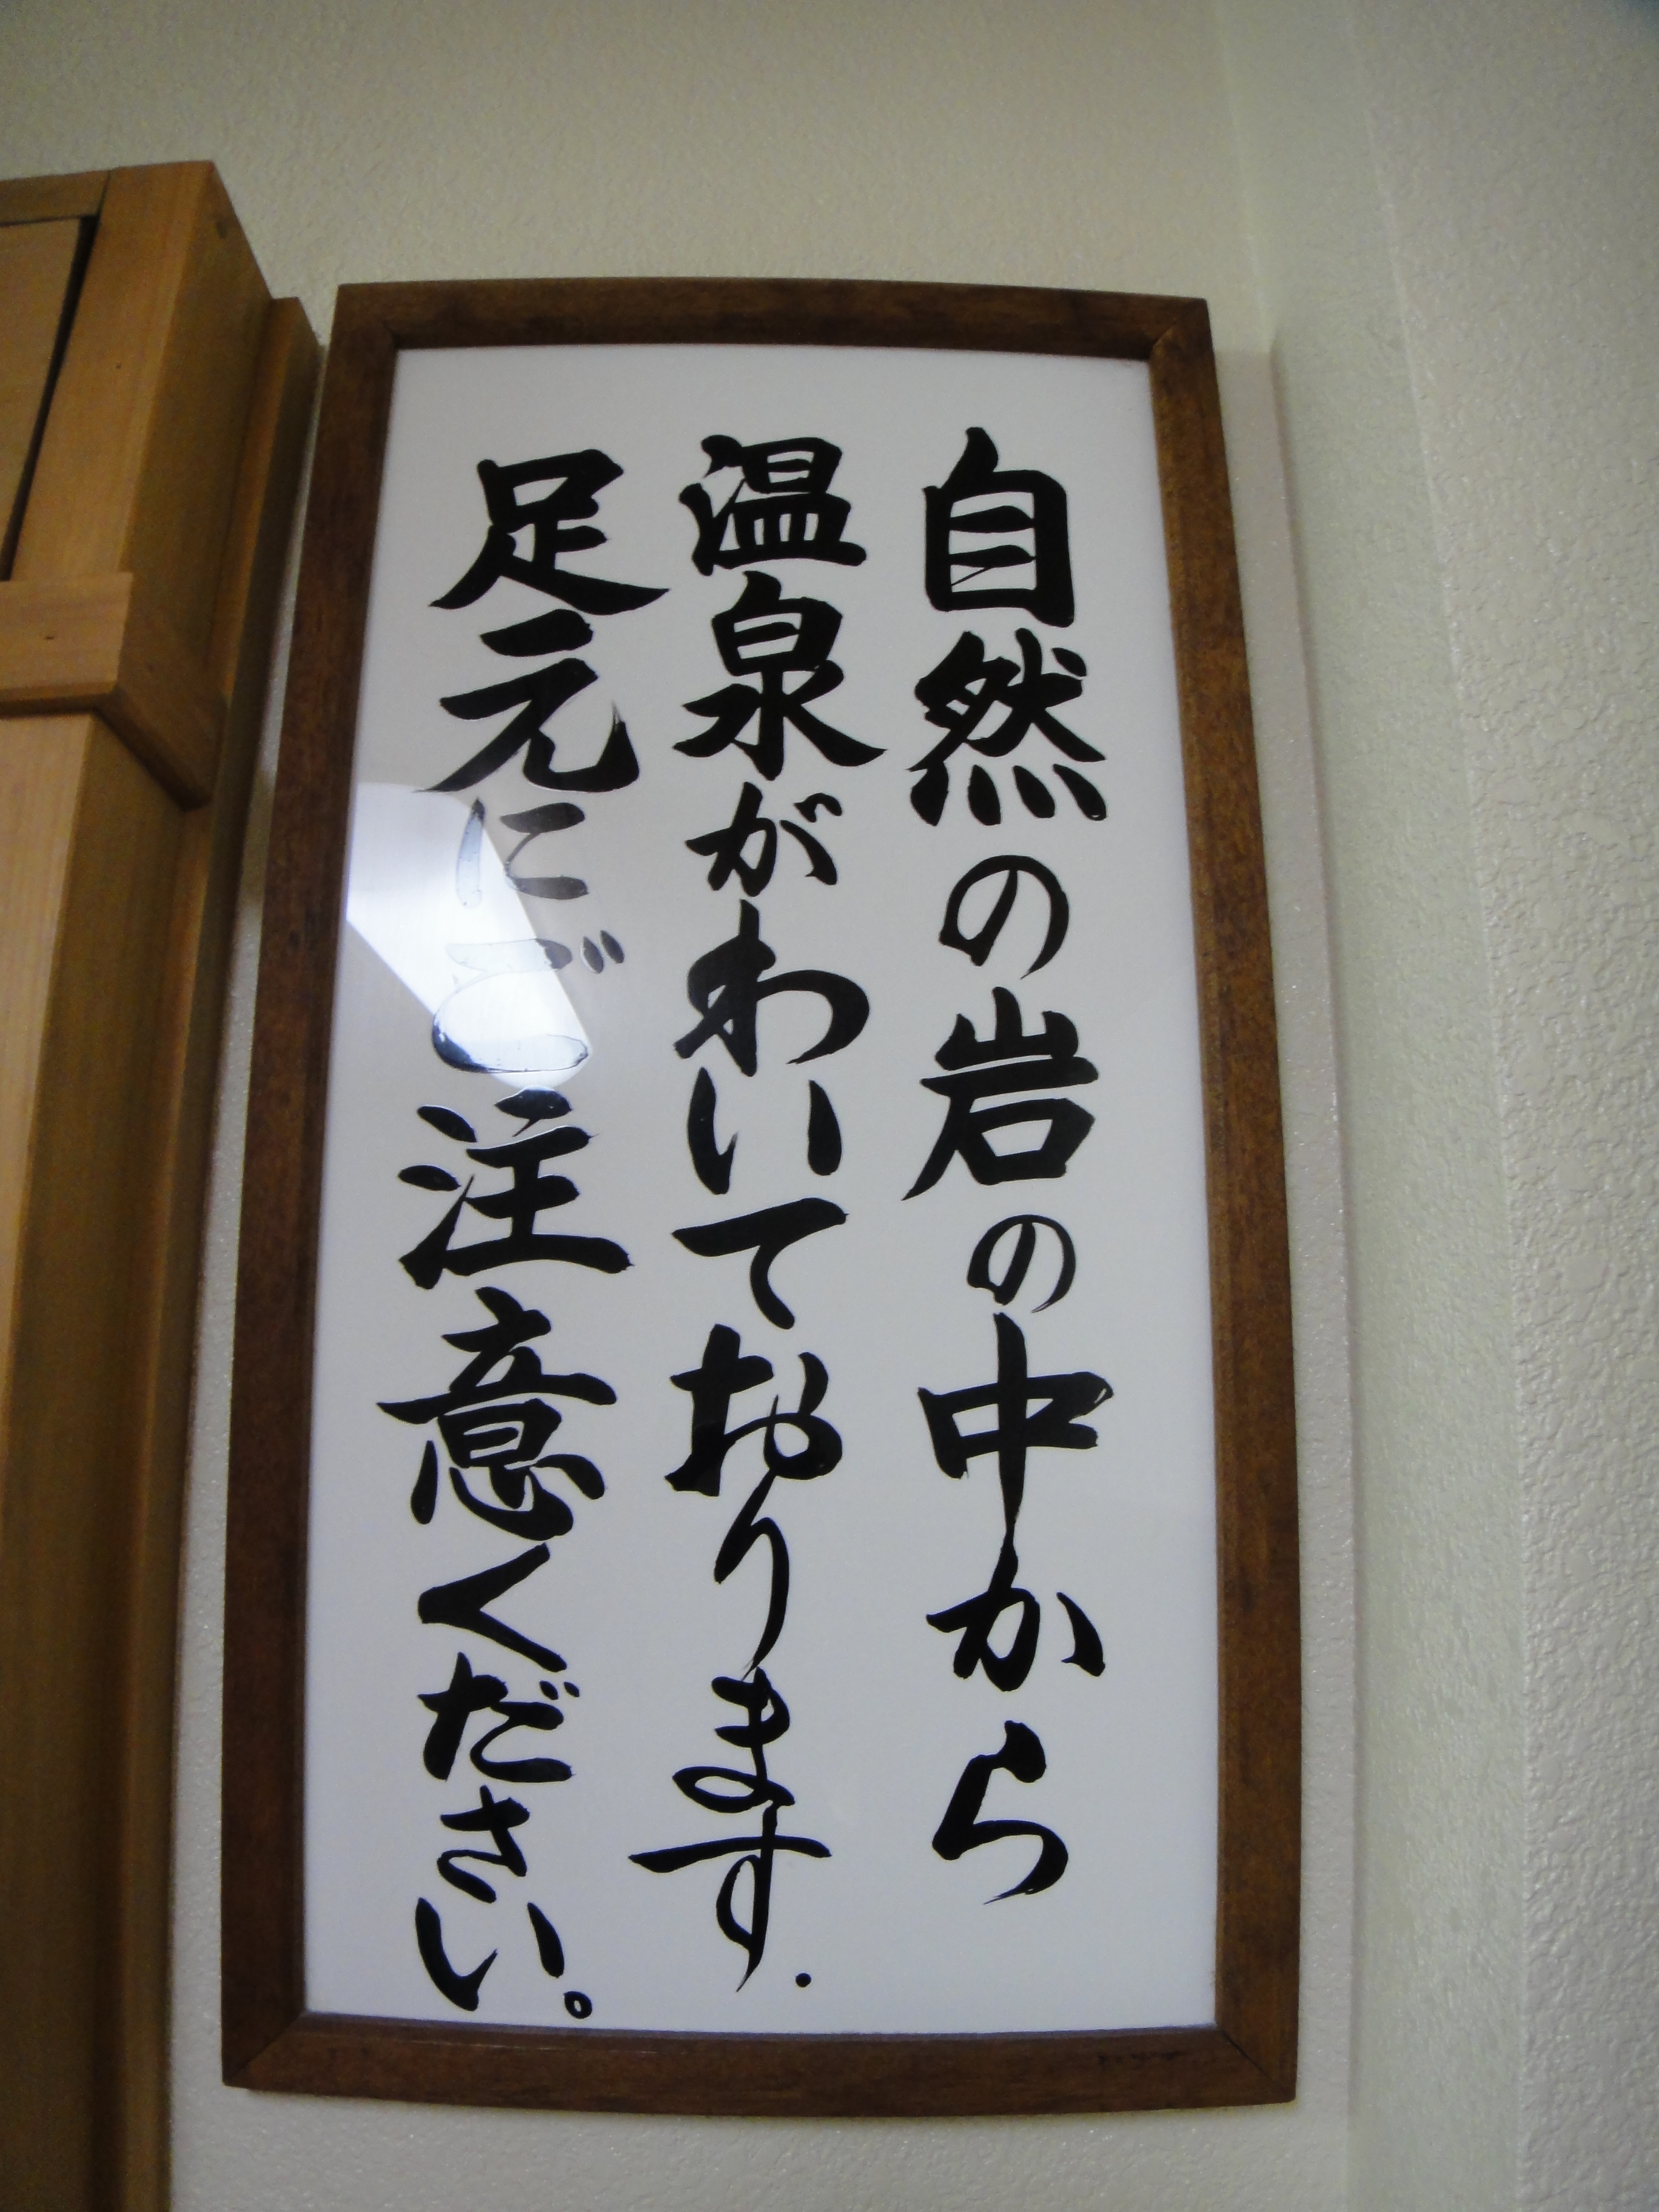 自然の岩の中から
温泉がわいております.
足元にご注意ください。